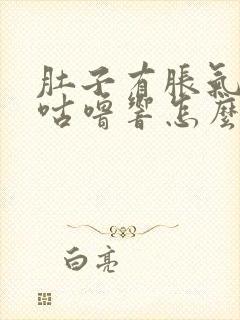 肚子有脹氣
咕嚕響怎麼
白亮